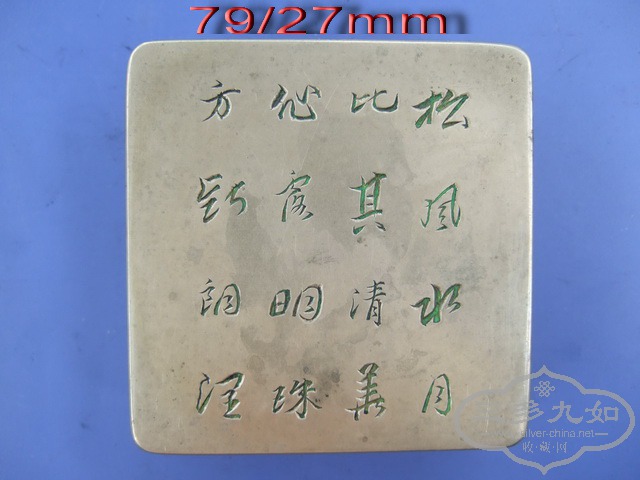 79/27mm
松風水月
比其清華
仙露明珠
方斯朗潤
多九如
silver-china.net
收·藏·网